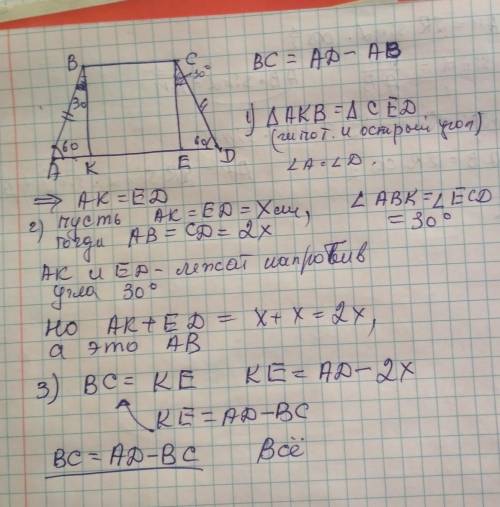 B C
BC = AD – AB
30 30°
60 60
A K E D
1) ΔAKB = ΔCED
(гипот. и острый угол)
∠A = ∠D.
⟹ AK = ED
2) пусть AK = ED = Xсм, ∠ABK = ∠ECD
тогда AB = CD = 2x = 30°
AK и ED – лежат напротив
угла 30°
Но AK + ED = x + x = 2x,
а это AB
3) BC = KE KE = AD – 2x
KE = AD – BC
BC = AD – BC Всё